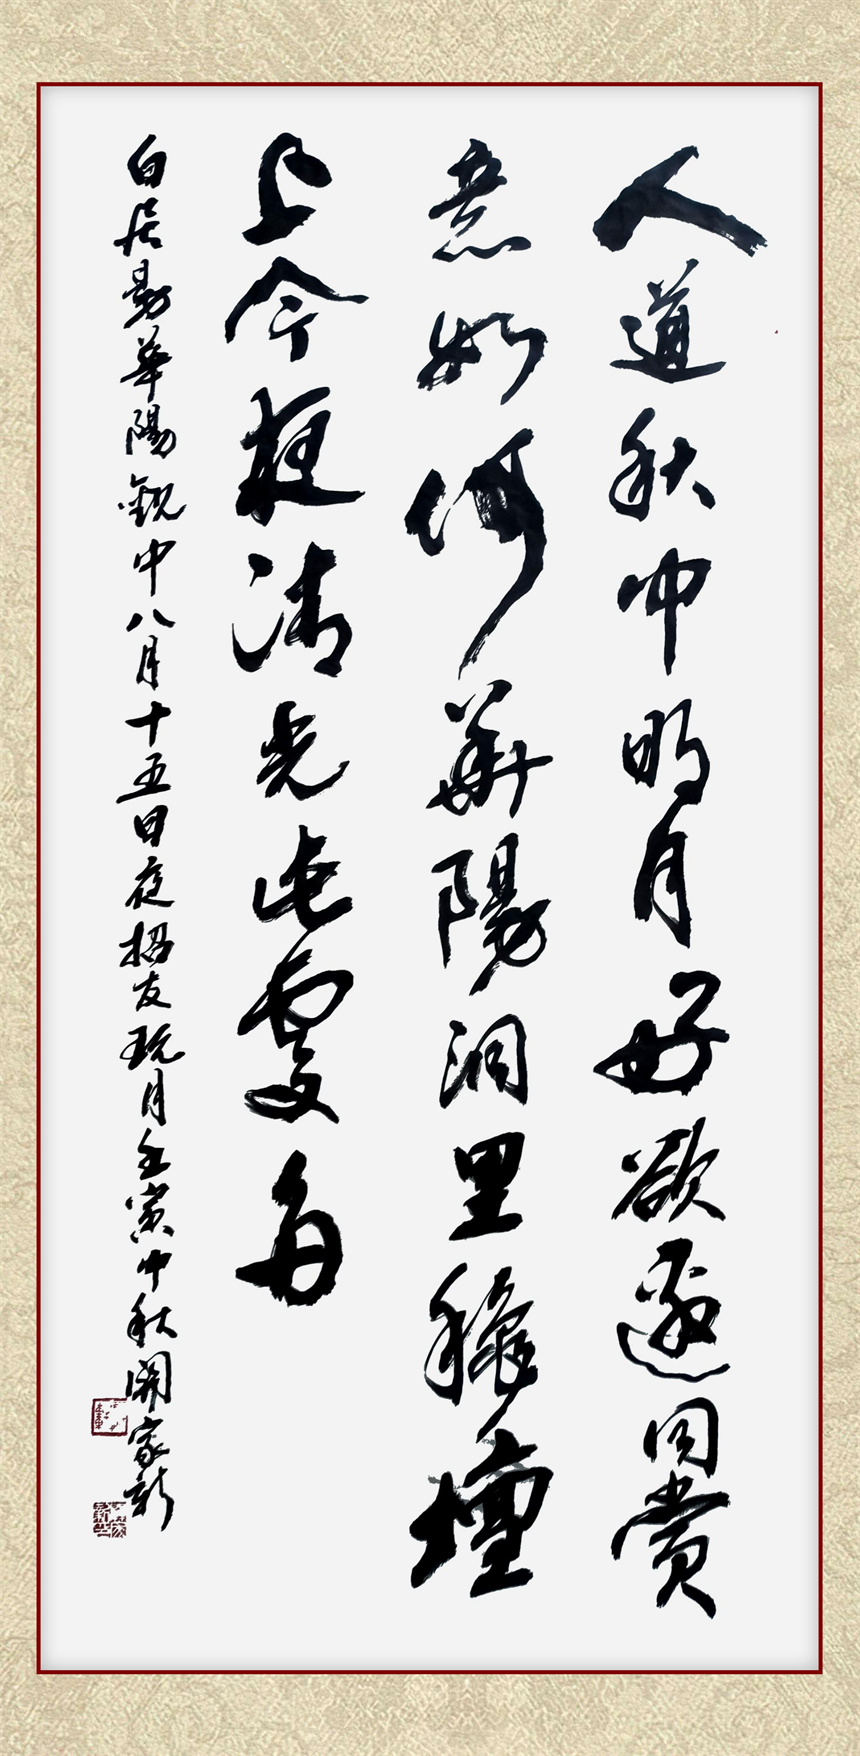 人道秋中明月好欲邀同賞
意如何華陽洞里龝壇
上今夜清光此處多
白居易華陽觀中八月十五日夜招友玩月壬寅中秋家新